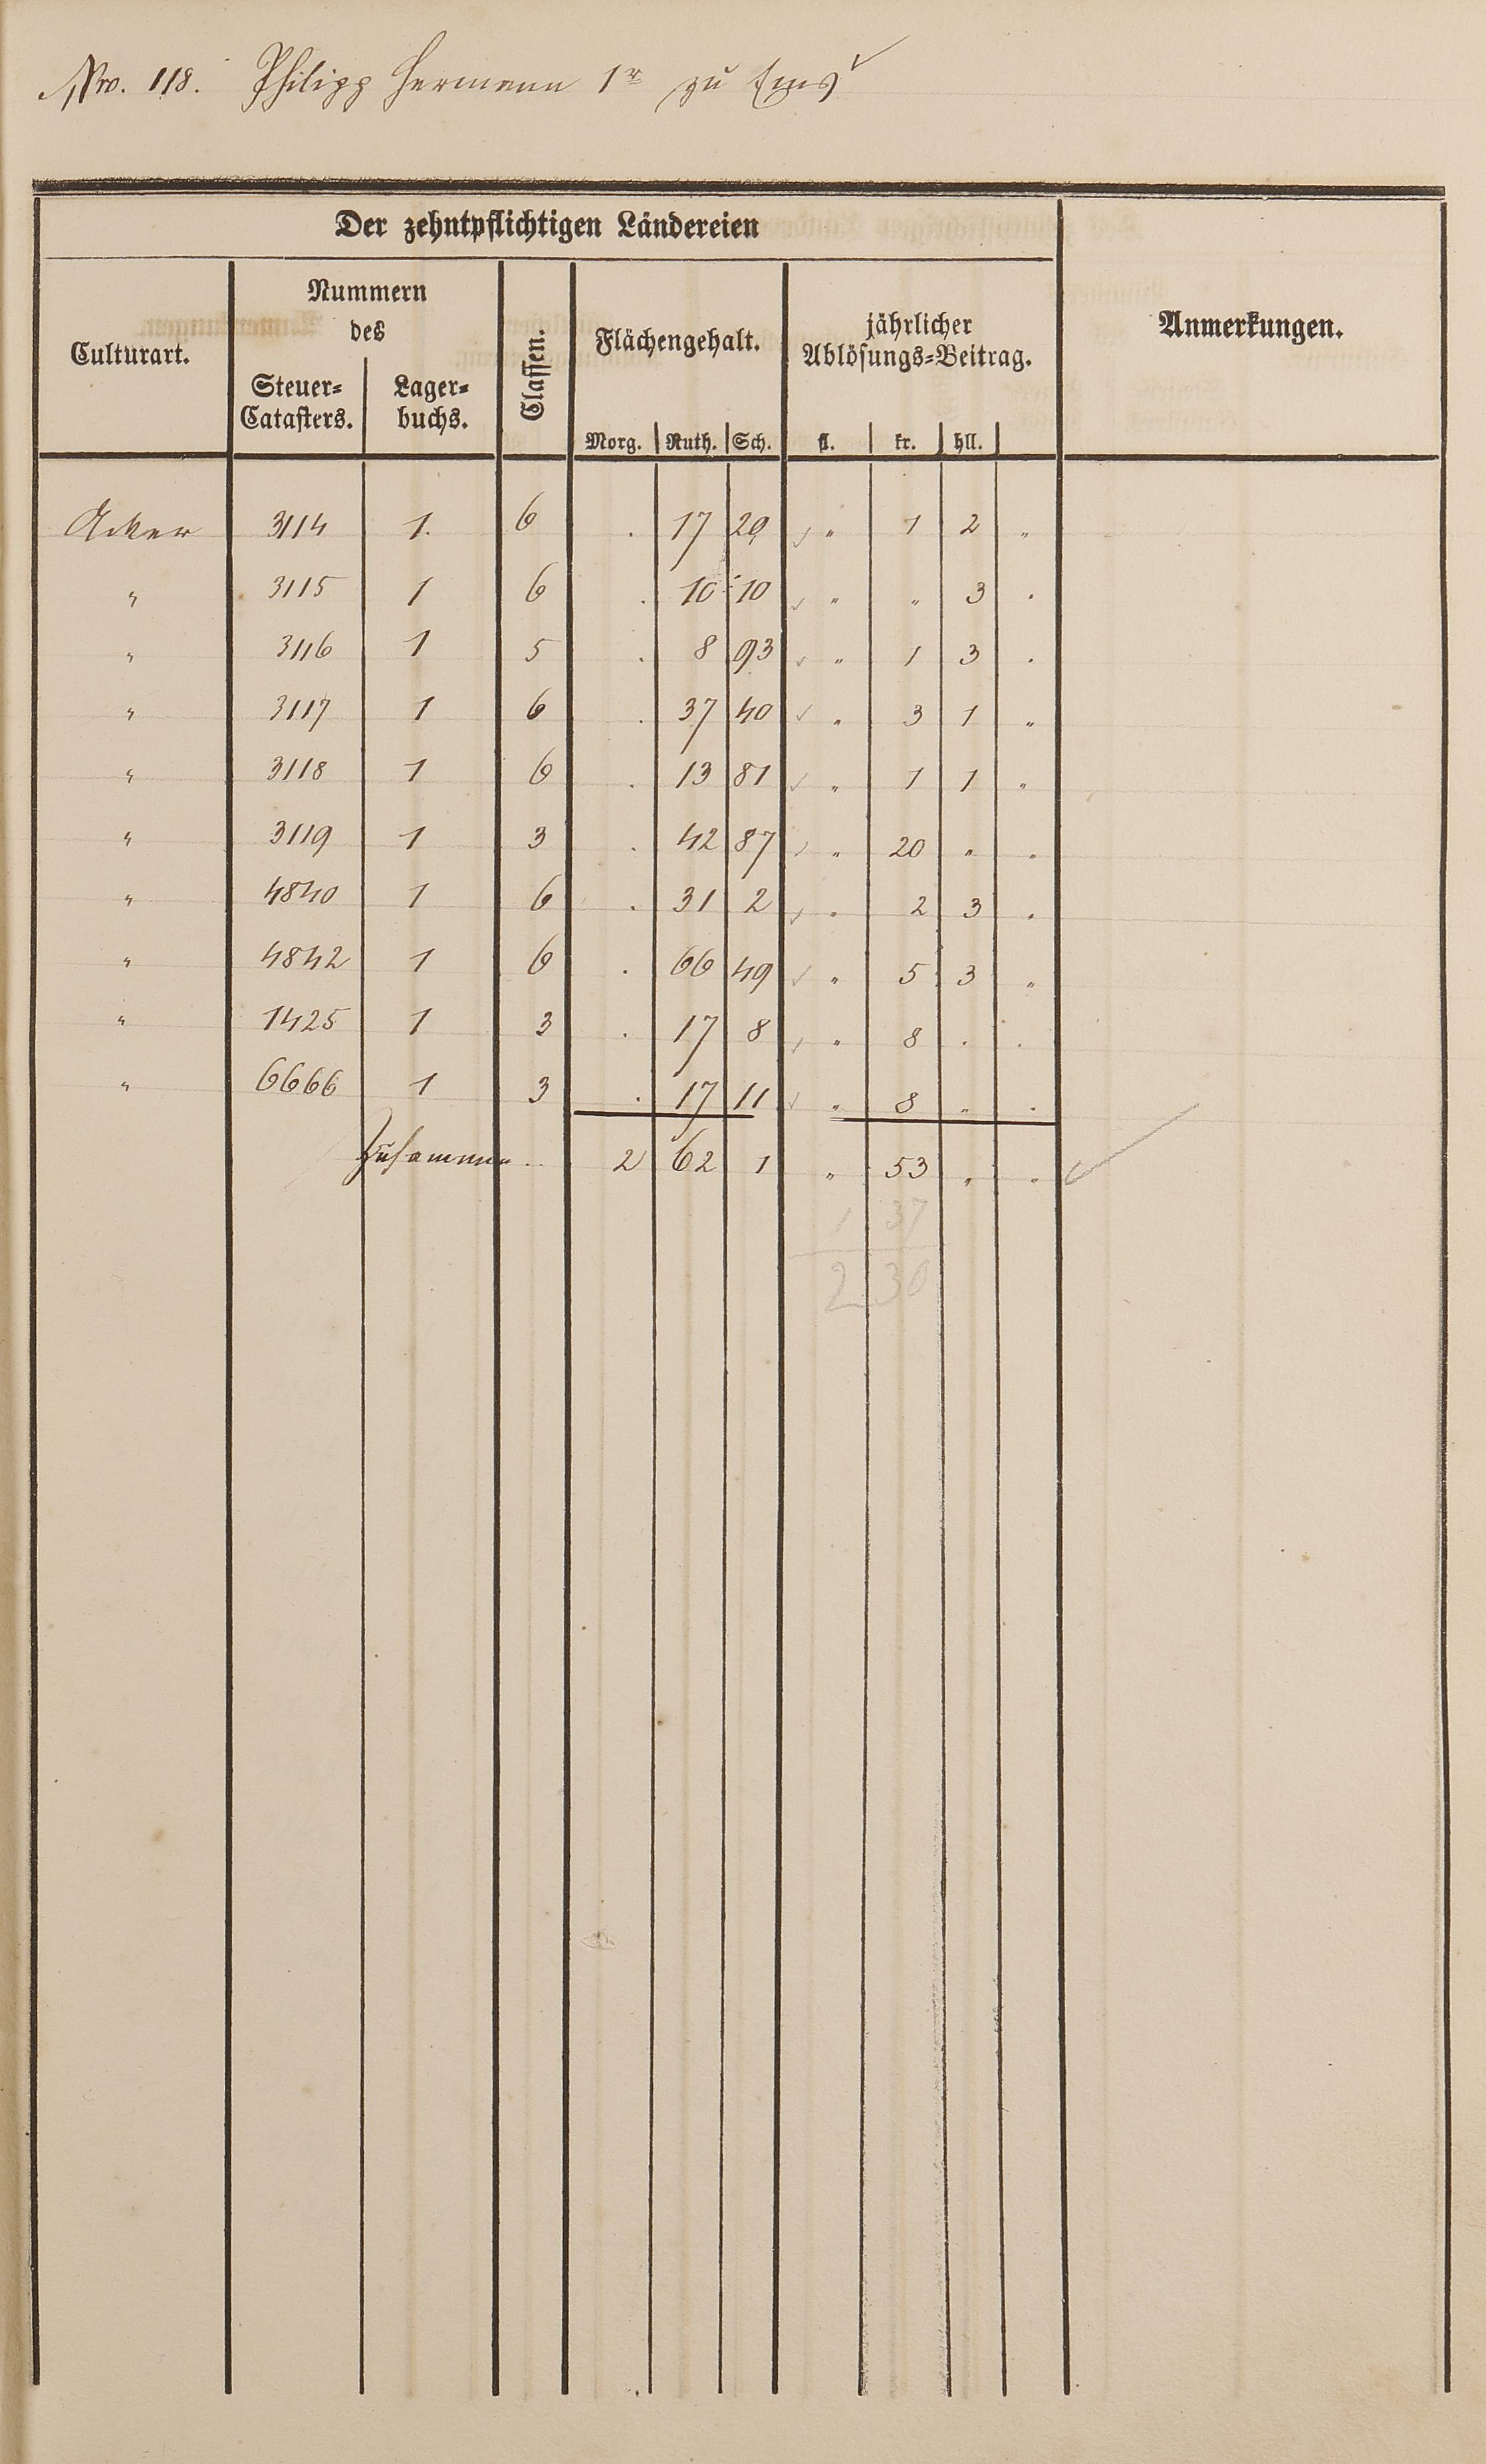 Nro. 118. Philipp Hermann 1r zu Ems
Der zehntpflichtigen Ländereien
Culturart.
Nummern
des
Steuer-
Catasters.
Lager-
buchs.
Classen.
Flächengehalt.
Morg. Ruth. Sch.
jährlicher
Ablösungs-Beitrag.
fl. kr. hll.
Anmerkungen.
Acker 3114 1. 6 . 17 29 " 1 2 "
" 3115 1 6 . 10 10 " " 3 .
" 3116 1 5 . 8 93 " 1 3 .
" 3117 1 6 . 37 40 " 3 1 "
" 3118 1 6 . 13 81 " 1 1 "
" 3119 1 3 . 42 87 " 20 " "
" 4840 1 6 . 31 2 " 2 3 .
" 4842 1 6 . 66 49 " 5 3 "
" 1425 1 3 . 17 8 " 8 . .
" 6666 1 3 . 17 11 " 8 " .
Zusammen .. 2 62 1 " 53 " "
1 37
2 30